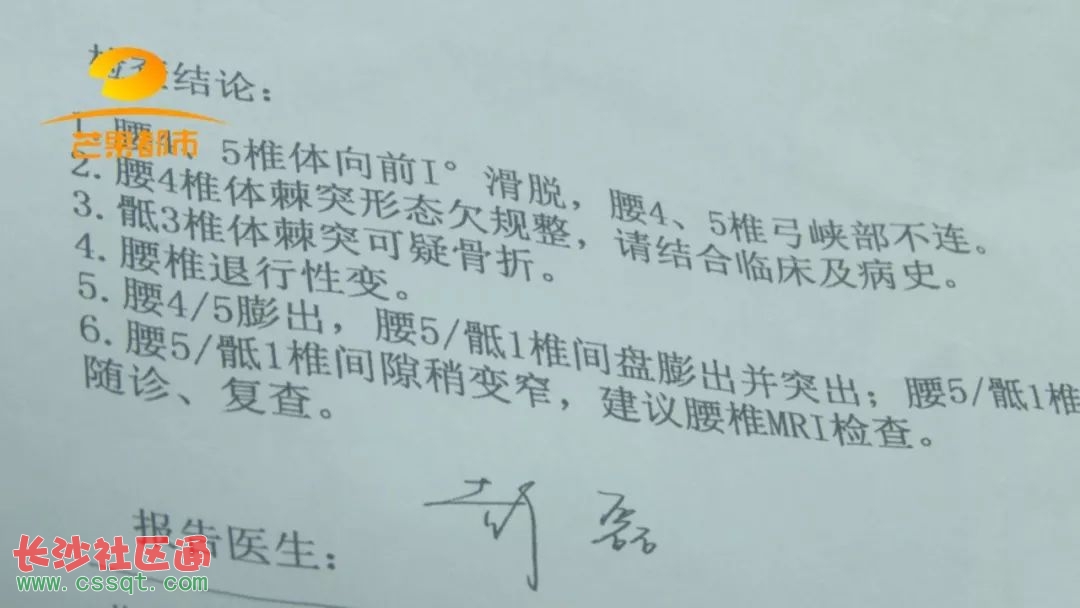 结论:
芒果都市
1.腰4、5椎体向前I°滑脱，腰4、5椎弓峡部不连。
2.腰4椎体棘突形态欠规整，请结合临床及病史。
3.骶3椎体棘突可疑骨折。
4.腰椎退行性变。
5.腰4/5膨出，腰5/骶1椎间盘膨出并突出；腰5/骶1椎
6.腰5/骶1椎间隙稍变窄，建议腰椎MRI检查。
随诊、复查。
报告医生:
磊
长沙社区通
www.cssqt.com